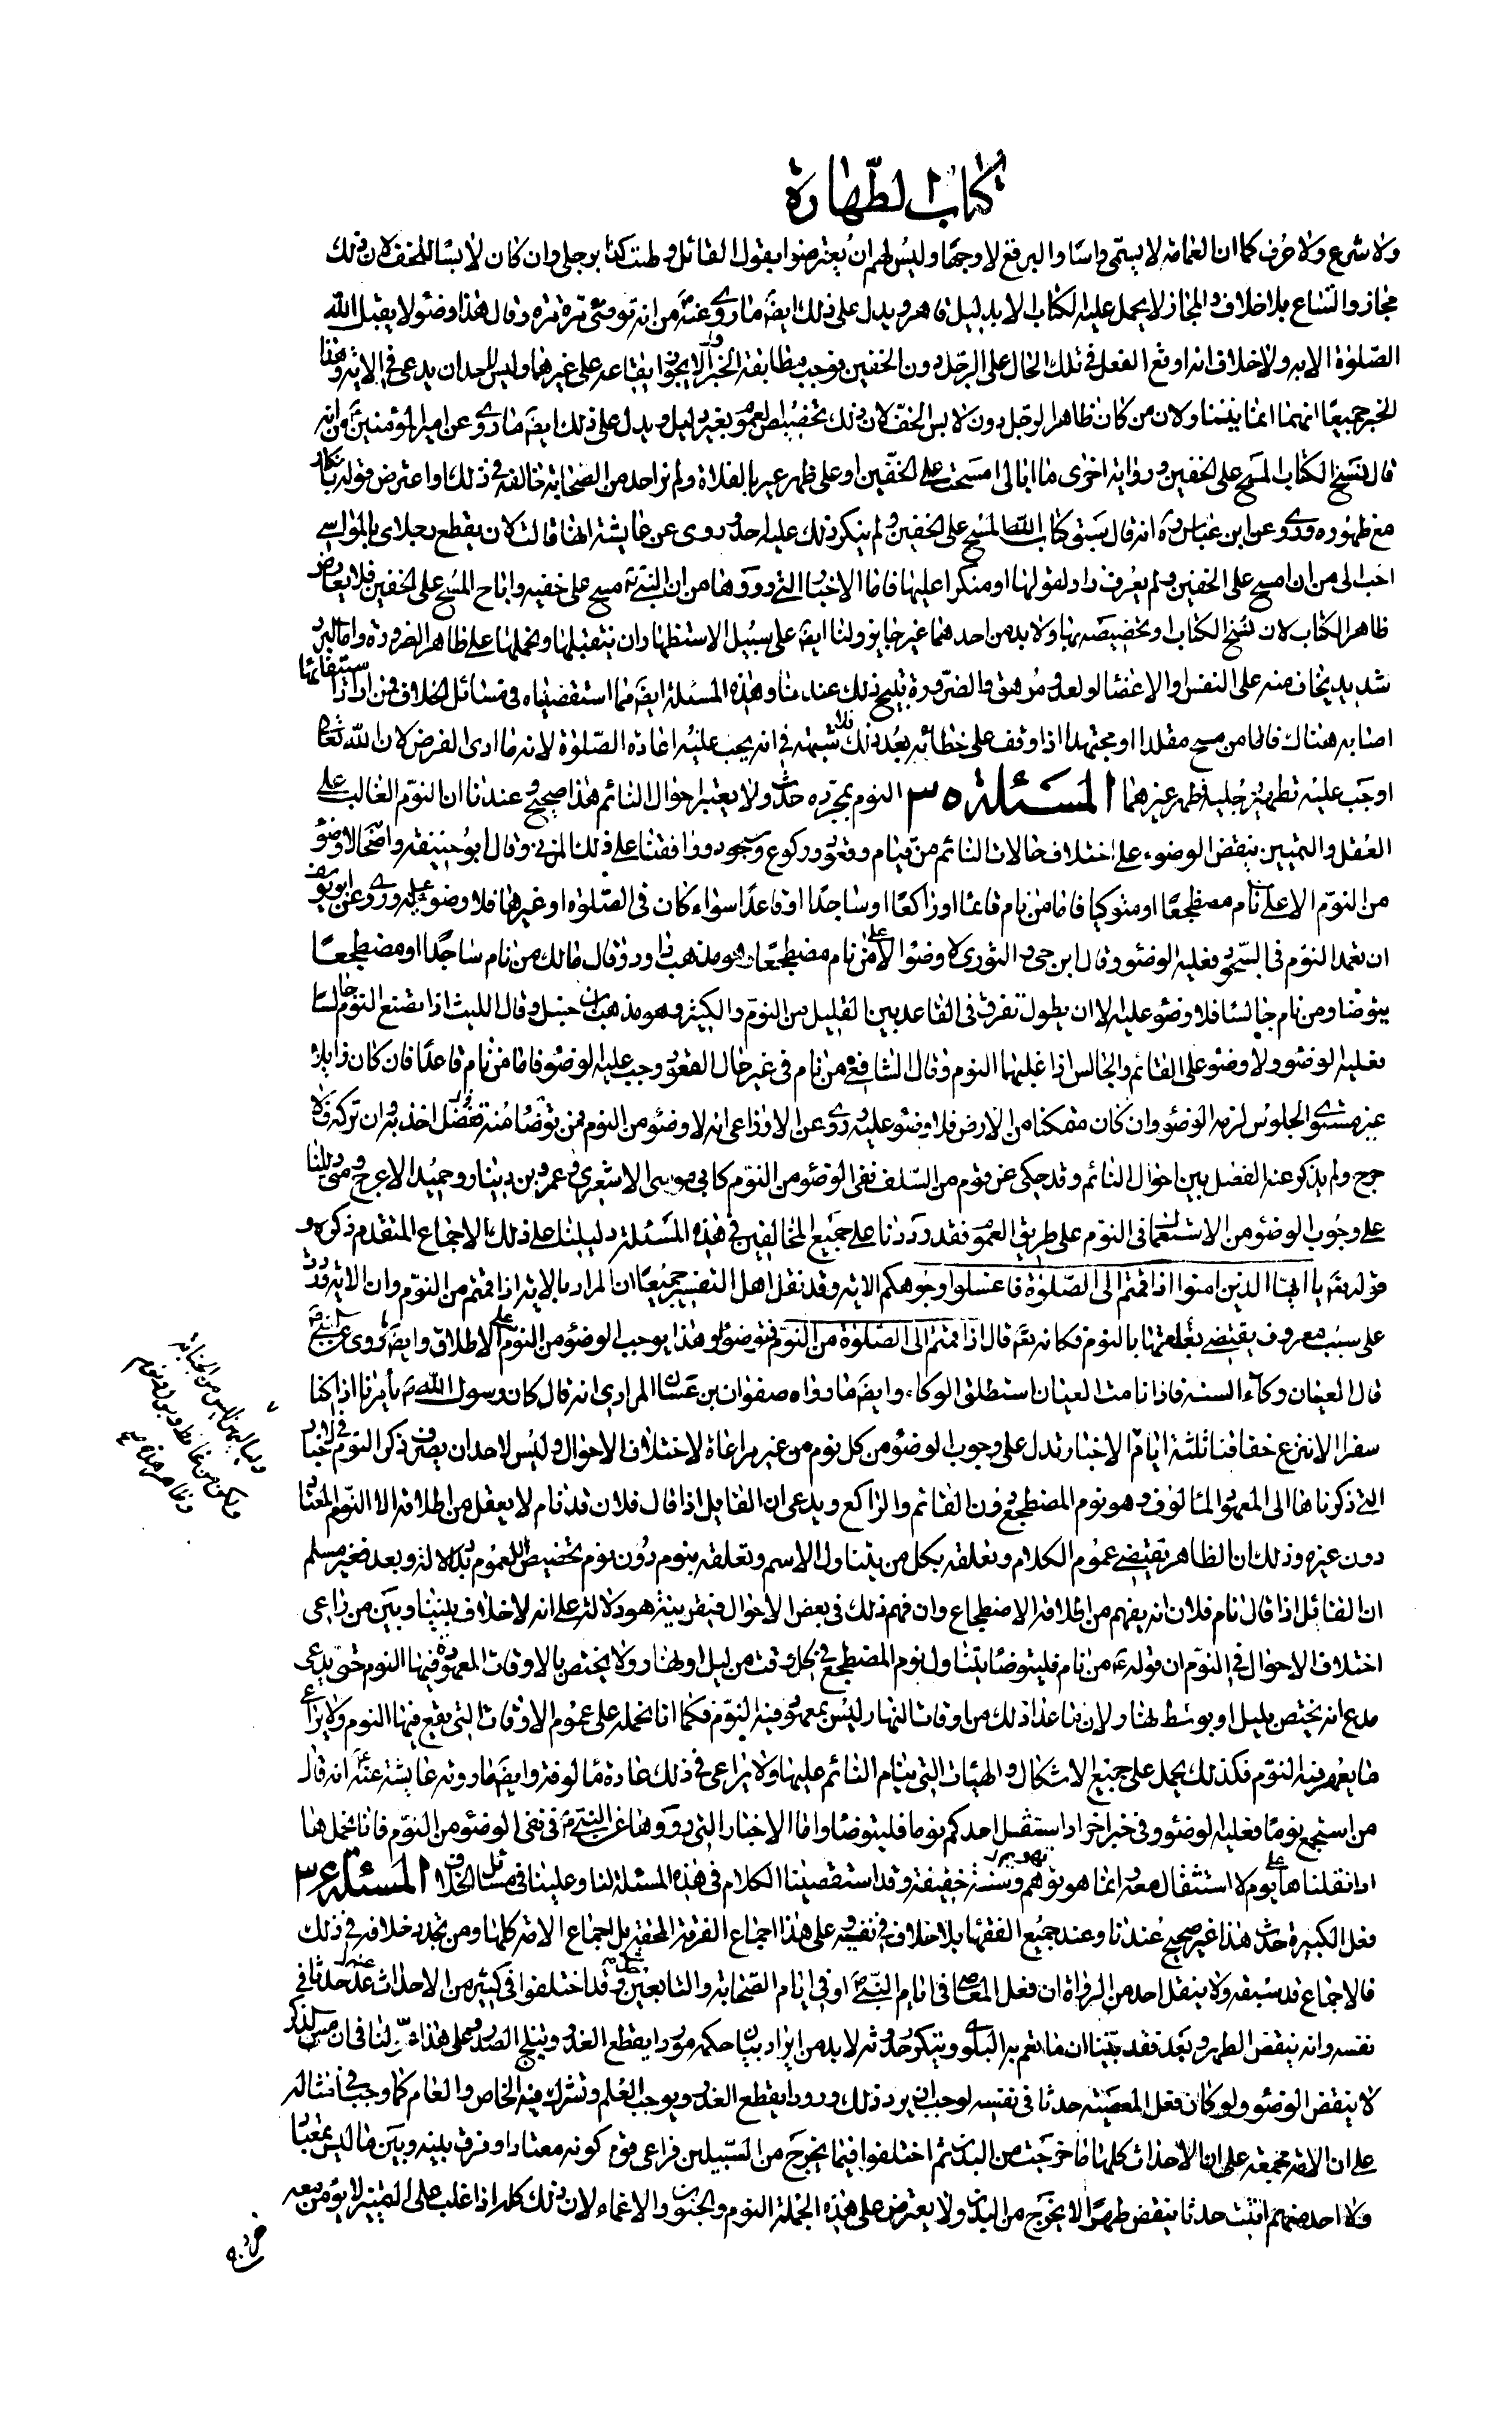 كتاب الطهارة
ولا شرع ولا عرف كما ان العمامة لا يسمى راسا والبرقع لا وجها وليس لهم ان يعترضوا بقول القائل وطئت كذا برجلي وان كان لابسا للخف لان ذلك
مجاز واتساع بلا خلاف والمجاز لا يحمل عليه الكتاب الا بدليل قاهر ويدل على ذلك ايضا ما روي عنه من انه توضئ مرة مرة وقال هذا وضوء لا يقبل الله
الصلوة الا به ولا خلاف انه اوقع الفعل في تلك الحال على الرجل دون الخفين فوجب مطابقة الخبر ولا يجوز ايقاعه على غيرهما وليس لاحد ان يدعي في الاية وهذا
الخبر جميعا انهما انما يتناولان من كان ظاهر الرجل دون لابس الخف لان ذلك تخصيص لعموم بغير دليل ويدل على ذلك ايضا ما روي عن امير المؤمنين من انه
قال نسخ الكتاب المسح على الخفين وفي رواية اخرى ما ابالي امسحت على الخفين او على ظهر عير بالفلاة ولم نر احد من الصحابة خالفه في ذلك او اعترض قوله بانكار
مع ظهوره وروي عن ابن عباس ره انه قال سبق كتاب الله المسح على الخفين ولم ينكر ذلك عليه احد وروى عن عايشة انها قالت لان يقطع رجلاي بالمواسي
احب الي من ان امسح على الخفين ولم يعرف راد لقولها او منكرا عليها فاما الاخبار التي رووها من ان النبي مسح على خفيه واباح المسح على الخفين فلا يعارض
ظاهر الكتاب لان نسخ الكتاب او تخصيصه بها ولا بد من احدهما غير جايز ولنا ايضا على سبيل الاستظهار ان نتقبلها ونحملها على ظاهر الضرورة واما لبرد
شديد يخاف منه على النفس او الاعضا او لعدو مرهق والضرورة تبيح ذلك عندنا وهذه المسئلة ايضا مما استقصيناه في مسائل الخلاف فمن اراد استيفائها
اصابه هناك فاما من مسح مقلدا او مجتهدا اذا وقف على خطائه بعد ذلك فلا شبهة في انه يجب عليه اعادة الصلوة لانه ما ادى الفرض لان الله تعالى
اوجب عليه تطهير رجليه فطهر غيرهما المسئلة ٣٥ النوم بمجرده حدث ولا يعتبر احوال النائم هذا صحيح وعندنا ان النوم الغالب على
العقل والتمييز ينقض الوضوء على اختلاف حالات النائم من قيام وقعود وركوع وسجود ووافقنا على ذلك المزني وقال ابو حنيفة واصحابه لا وضوء
من النوم الا على من نام مضطجعا او متوكيا فاما من نام قائما او راكعا او ساجدا او قاعدا سواء كان في الصلوة او غيرها فلا وضوء عليه وروي عن ابو يوسف
ان تعمد النوم في السجود فعليه الوضوء وقال ابن حي والثوري لا وضوء الا على من نام مضطجعا وهو مذهب داود وقال مالك من نام ساجدا او مضطجعا
يتوضا ومن نام جالسا فلا وضوء عليه الا ان يطول تفرق في القاعد بين القليل من النوم والكثير وهو مذهب ابن حنبل وقال الليث اذا تصنع النوم جالسا
فعليه الوضوء ولا وضوء على القائم والجالس اذا غلبهما النوم وقال الشافعي من نام في غير حال القعود وجب عليه الوضوء فاما من نام قاعدا فان كان زايلا
غير مستوي الجلوس لزمه الوضوء وان كان متمكنا من الارض فلا وضوء عليه وروي عن الاوزاعي انه لا وضوء من النوم فمن توضا منه ففضل اخذ به وان تركه فلا
حرج ولم يذكر عنه الفصل بين احوال النائم وقد حكي عن قوم من السلف نفي الوضوء من النوم كابي موسى الاشعري وعمرو بن دينار وحميد الاعرج ومتى دللنا
على وجوب الوضوء من الاستغراق في النوم على طريق العموم فقد رددنا على جميع المخالفين في هذه المسئلة دليلنا على ذلك الاجماع المتقدم ذكره و
قوله تع يا ايها الذين امنوا اذا قمتم الى الصلوة فاغسلوا وجوهكم الاية وقد نقل اهل التفسير جميعا ان المراد بالاية اذا قمتم من النوم وان الاية وردت
على سبب معروف يقتضي تعلقها بالنوم فكانه تع قال اذا قمتم الى الصلوة من النوم فتوضوا وهذا يوجب الوضوء من النوم على الاطلاق وايضا ما روى عن النبي
قال العينان وكاء السه فاذا نامت العينان استطلق الوكاء وايضا ما رواه صفوان بن عسال المرادي انه قال كان رسول الله يأمرنا اذا كنا
سفرا الا ننزع خفافنا ثلثة ايام الاخبار تدل على وجوب الوضوء من كل نوم من غير مراعاة لاختلاف الاحوال وليس لاحد ان يصرف ذكر النوم في الاخبار
التي ذكرناها الى المعهود المالوف وهو نوم المضطجع دون القائم والراكع ويدعي ان القايل اذا قال فلان قد نام لا يعقل من اطلاقه الا النوم المعتاد
دون غيره وذلك ان الظاهر يقتضي عموم الكلام وتعلقه بكل من يتناوله الاسم وتعلقه بنوم دون نوم تخصيص للعموم بلا دلالة وبعد فغير مسلم
ان القائل اذا قال نام فلان انه يفهم من اطلاقه الاضطجاع وان فهم ذلك في بعض الاحوال فبقرينة هو دلالة على انه لا خلاف بيننا وبين من راعى
اختلاف الاحوال في النوم ان قوله من نام فليتوضا يتناول نوم المضطجع في كل وقت من ليل او نهار ولا يختص بالاوقات المعهودة فيها النوم حتى يدعي
مدع انه يختص بليل او بوسط نهار ولان ما عدا ذلك من اوقات النهار ليس بمعهود فيه النوم فكما انا نحمله على عموم الاوقات التي يقع فيها النوم ولا يراعى
ما يعهد فيه النوم فكذلك يحمل على جميع الاشكال والهيئات التي ينام النائم عليها ولا يراعى في ذلك عادة مالوفة وايضا ما روته عايشة عنه انه قال
من استجمع نوما فعليه الوضوء وفي خبر اخر اذا استثقل احدكم نوما فليتوضا واما الاخبار التي رووها عن النبي في نفي الوضوء من النوم فانا نحملها
اذا نقلناها على نوم لا استثقال معه انما هو تهويم وسنة خفيفة وقد استقصينا الكلام في هذه المسئلة لنا وعلينا في مسائل الخلاف المسئلة ٣٦
فعل الكبيرة حدث هذا غير صحيح عندنا وعند جميع الفقهاء بلا خلاف في نفيه وعلى هذا اجماع الفرقة المحقة بل اجماع الامة كلها ومن تجدد خلافه في ذلك
فالاجماع قد سبقه ولا ينقل احد من الرواة ان فعل المعاصي في ايام النبي او في ايام الصحابة والتابعين وقد اختلفوا في كثير من الاحداث عد حدثا في
نفسه وانه ينقض الطهر وبعد فقد بينا ان ما تعم به البلوى ويتكرر حدوثه لا بد من ايراد بيان حكمه مورد يقطع العذر ويثلج الصدر وعلى هذا عولنا في ان مس الذكر
لا ينقض الوضوء ولو كان فعل المعصية حدثا في نفسه لوجب ان يرد ذلك ورودا يقطع العذر ويوجب العلم وتشرك فيه الخاص والعام كما وجب في امثاله
على ان الامة مجمعة على ان الاحداث كلها ما خرجت من البدن ثم اختلفوا فيما يخرج من السبيلين فراعى قوم كونه معتادا وفرق بينه وبين ما ليس بمعتاد
ولا احد منهم اثبت حدثا ينقض طهرا الا يخرج من البدن ولا يعترض على هذه الجملة النوم والجنون والاغماء لان ذلك كله اذا غلب على التمييز لا يؤمن معه